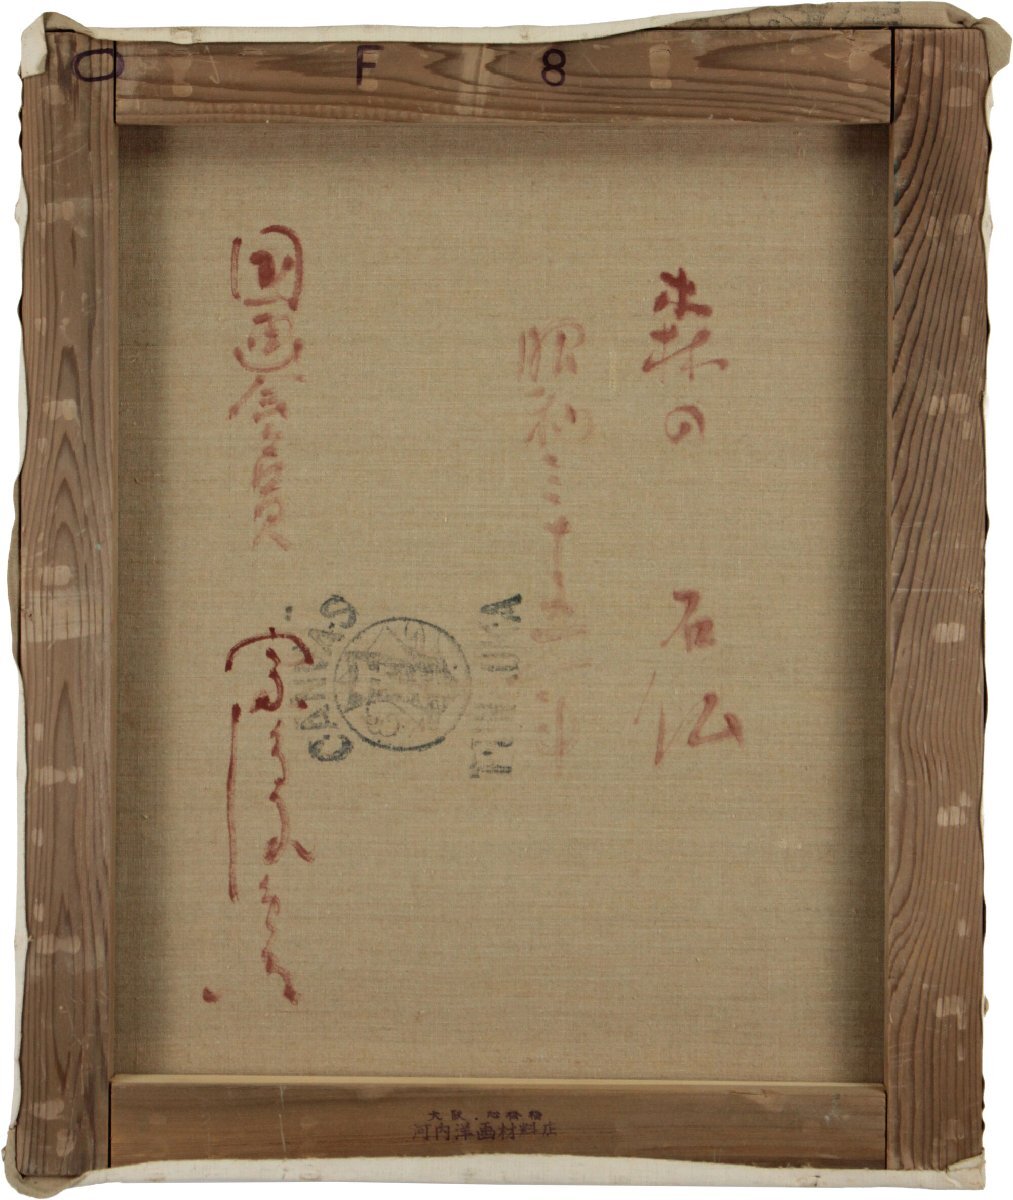 O F 8
森の石仏
昭和三十五年
国画会々員
CANVAS
大阪・心斎橋
河内洋画材料店